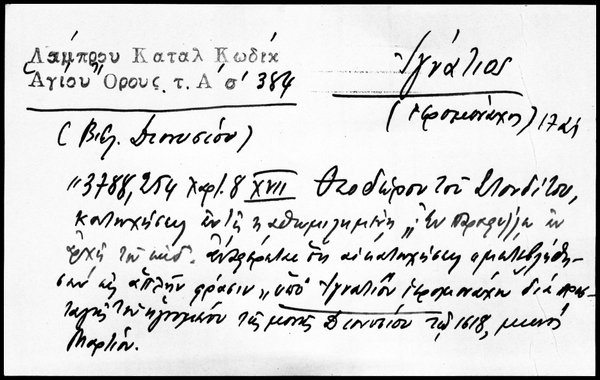 Λάμπρου Καταλ Κώδικ
Ἁγίου Ὄρους. τ. Α σ' 384
Ἰγνάτιος
(ἱερομόναχος) 1721
(Βιβλ. Διονυσίου)
"3788, 254 χαρτ. 8 XVII Θεοδώρου τοῦ Στουδίτου,
κατηχήσεις ἐν τῇ καθωμιλημένῃ, "Ἐν παραφύλλῳ ἐν
ἀρχῇ τοῦ κώδ. ἀναφέρεται ὅτι αἱ κατηχήσεις αὗται μετεβλήθη-
σαν εἰς ἁπλῆν φράσιν "ὑπὸ Ἰγνατίου ἱερομονάχου διὰ προσ-
ταγῆς τοῦ ἡγουμένου τῆς μονῆς Διονυσίου τῷ 1618, μηνὸς
Μαρτίου.